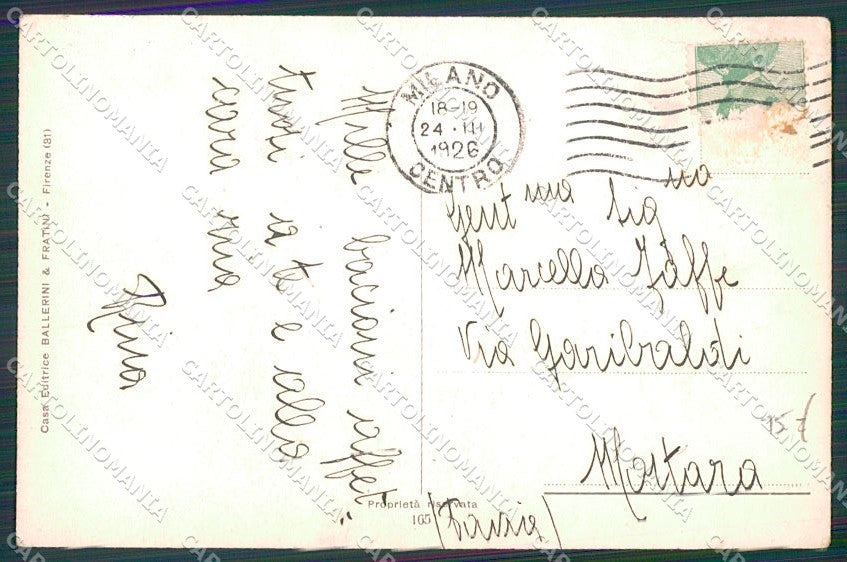 Casa Editrice BALLERINI & FRATINI - Firenze (31)
Mille bacioni affet"
tuosi a te e alla
cara mia
MILANO
18-19
24 · III
1926
CENTRO
Gent ma Sig na
Marcella Jaffe
Via Garibaldi
Mortara
(Pavia)
15 £
Proprietà riservata
165
CARTOLINOMANIA